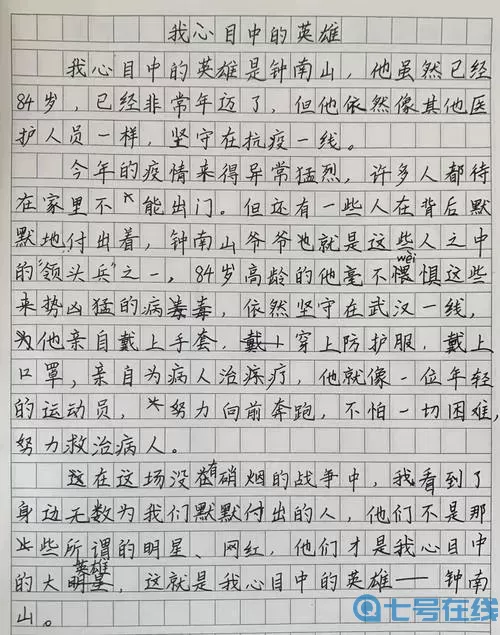 我心目中的英雄
我心目中的英雄是钟南山，他虽然已经
84岁，已经非常年迈了，但他依然像其他医
护人员一样，坚守在抗疫一线。
今年的疫情来得异常猛烈，许多人都待
在家里不能出门。但还有一些人在背后默
默地付出着，钟南山爷爷也就是这些人之中
wèi
的“领头兵”之一，84岁高龄的他毫不畏惧这些
来势凶猛的病毒，依然坚守在武汉一线，
他亲自戴上手套，穿上防护服，戴上
口罩，亲自为病人治疗，他就像一位年轻
的运动员，努力向前奔跑，不怕一切困难，
努力救治病人。
在这场没有硝烟的战争中，我看到了
身边无数为我们默默付出的人，他们不是那
些所谓的明星、网红，他们才是我心目中
的大英雄，这就是我心目中的英雄——钟南
山。
七号在线